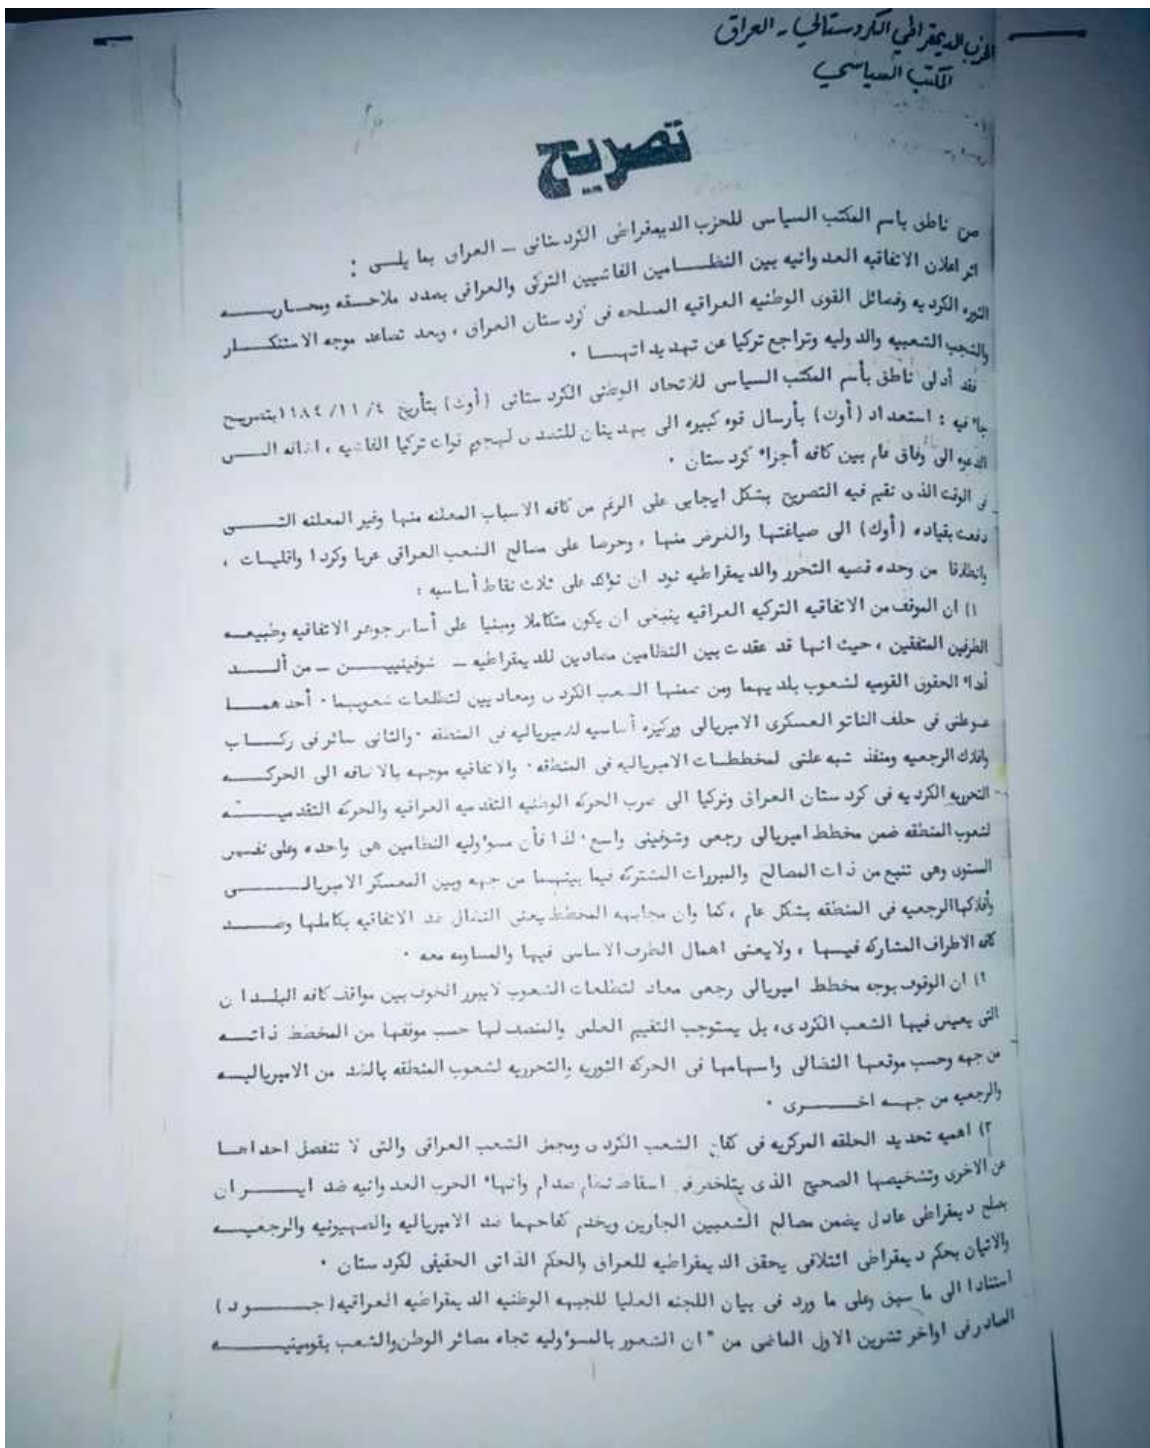 الحزب الديمقراطي الكردستاني - العراق
المكتب السياسي
تصريح
من ناطق باسم المكتب السياسى للحزب الديمقراطى الكردستانى _ العراق بما يلــى :
اثر اعلان الاتفاقيه العدوانيه بين النظـــامين الفاشيين التركى والعراقى بصدد ملاحـــقه ومحــاربـــه
الثوره الكرديه وفصائل القوى الوطنيه العراقيه المسلحه فى كردستان العراق ، وبعد تصاعد موجه الاستنكـــار
والشجب الشعبيه والدوليه وتراجع تركيا عن تهديداتهـــا ٠
فقد أدلى ناطق بأسم المكتب السياسى للاتحاد الوطنى الكردستانى (أوك) بتأريخ ١٩٨٤/١١/٤ بتصريــح
جاء فيه : استعداد (أوك) بأرسال قوه كبيره الى بهدينان للتصدى لهجوم قوات تركيا الفاشيه ، اضافه الـــى
الدعوه الى وفاق عام بين كافه أجزاء كردستان ٠
فى الوقت الذى نقيم فيه التصريح بشكل ايجابى على الرغم من كافه الاسباب المعلنه منها وغير المعلنه التـــى
دفعت بقياده (أوك) الى صياغتها والغرض منها ، وحرصا على مصالح الشعب العراقى عربا وكردا واقليات ،
وانطلاقا من وحده قضيه التحرر والديمقراطيه نود ان نؤكد على ثلاث نقاط أساسيه :
١) ان الموقف من الاتفاقيه التركيه العراقيه ينبغى ان يكون متكاملا ومبنيا على أساس جوهر الاتفاقيه وطبيعـــه
الطرفين المتفقين ، حيث انها قد عقدت بين النظامين معادين للديمقراطيه _ شوفينييـــن _ من ألـــد
أعداء الحقوق القوميه لشعوب بلديهما ومن ضمنها الشعب الكردى ومعاديين لتطلعات شعوبهما ٠ أحدهمـــا
عضو فى حلف الناتو العسكرى الامبريالى وركيزه أساسيه للامبرياليه فى المنطقه ٠ والثانى سائر فى ركـــاب
وافلاك الرجعيه ومنفذ شبه علنى لمخططات الامبرياليه فى المنطقه ٠ والاتفاقيه موجهه بالاضافه الى الحركـــه
التحرريه الكرديه فى كردستان العراق وتركيا الى ضرب الحركه الوطنيه التقدميه العراقيه والحركه التقدميـــه
لشعوب المنطقه ضمن مخطط امبريالى رجعى وشوفينى واسع ٠ لذا فأن مسؤوليه النظامين هى واحده وعلى نفس
المستوى وهى تنبع من ذات المصالح والمبررات المشتركه فيما بينهما من جهه وبين المعسكر الامبريالـــى
وأفلاكها الرجعيه فى المنطقه بشكل عام ، كما وان مجابهه المخطط يعنى النضال ضد الاتفاقيه بكاملها وضـــد
كافه الاطراف المشاركه فيـــها ، ولايعنى اهمال الطرف الاساسى فيها والمساومه معه ٠
٢) ان الوقوف بوجه مخطط امبريالى رجعى معاد لتطلعات الشعوب لايبرر بين مواقف كافه البلـــدان
التى يعيش فيها الشعب الكردى، بل يستوجب التقييم العلمى والمنصف لها حسب موقفها من المخطط ذاتـــه
من جهه وحسب موقعها النضالى واسهامها فى الحركه الثوريه والتحرريه لشعوب المنطقه بالضد من الامبرياليـــه
والرجعيه من جهـــه اخـــرى ٠
٣) اهميه تحديد الحلقه المركزيه فى كفاح الشعب الكردى ومجمل الشعب العراقى والتى لا تنفصل احداهـــا
عن الاخرى وتشخيصها الصحيح الذى يتلخص فى اسقاط نظام صدام وانهاء الحرب العدوانيه ضد ايـــران
بصلح ديمقراطى عادل يضمن مصالح الشعبين الجارين ويخدم كفاحهما ضد الامبرياليه والصهيونيه والرجعيـــه
والاتيان بحكم ديمقراطى ائتلافى يحقق الديمقراطيه للعراق والحكم الذاتى الحقيقى لكردستان ٠
استنادا الى ما سبق وعلى ما ورد فى بيان اللجنه العليا للجبهه الوطنيه الديمقراطيه العراقيه (جـــود)
الصادر فى اواخر تشرين الاول الماضى من " ان الشعور بالمسؤوليه تجاه مصائر الوطن والشعب بقوميتيـــه